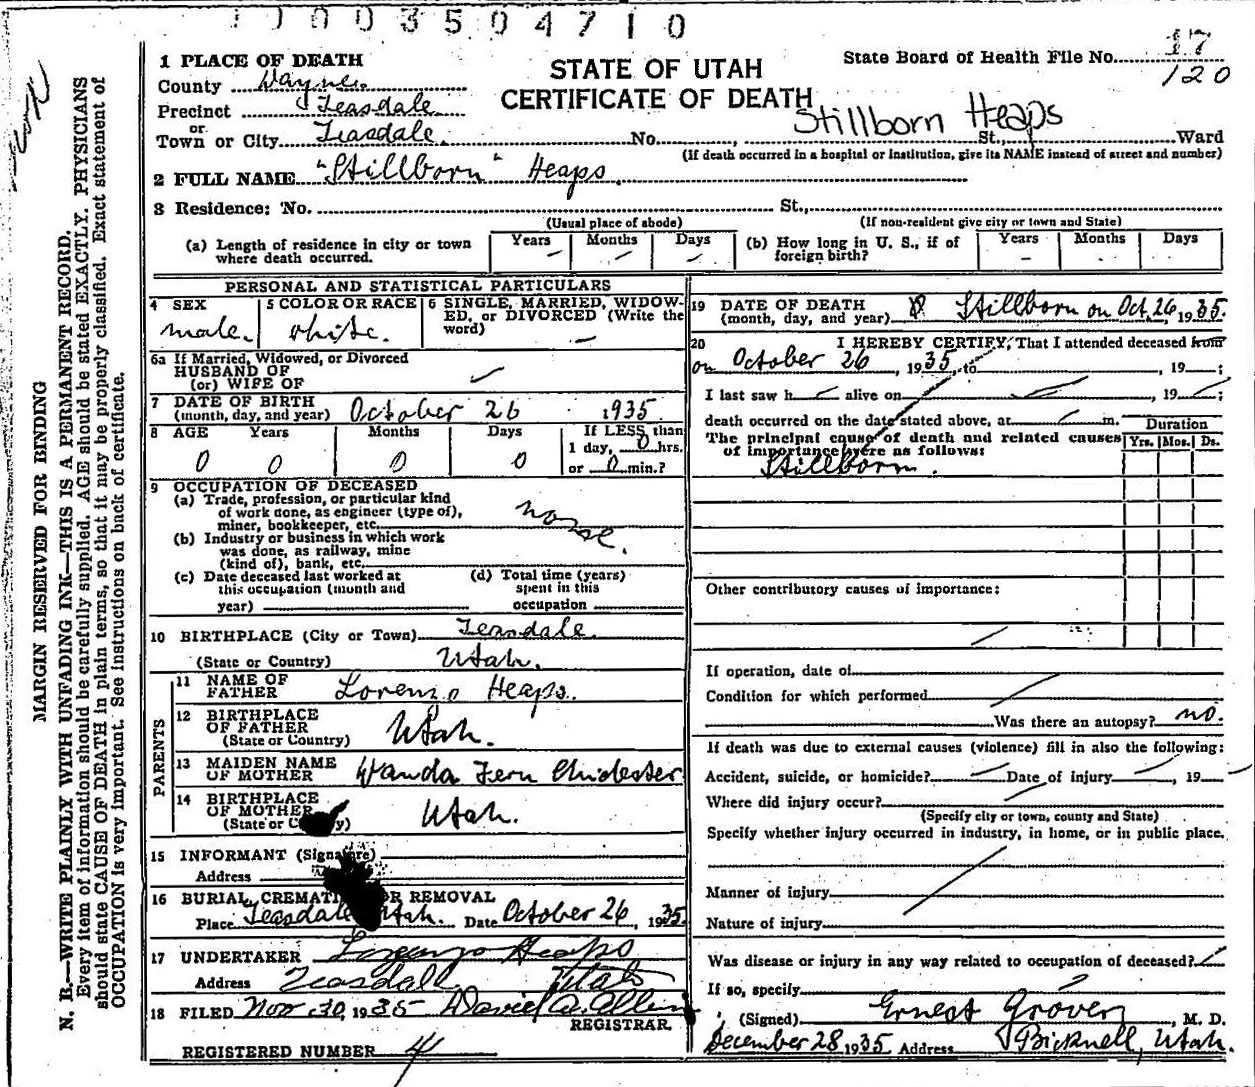 1 0 0 3 5 0 4 7 1 0
1 PLACE OF DEATH
County Wayne.
Precinct Teasdale
or
Town or City Teasdale. No. , St., Ward
STATE OF UTAH
CERTIFICATE OF DEATH
Stillborn Heaps
State Board of Health File No. 17
120
(If death occurred in a hospital or institution, give its NAME instead of street and number)
2 FULL NAME "Stillborn" Heaps.
3 Residence: No. St.,
(Usual place of abode) (If non-resident give city or town and State)
(a) Length of residence in city or town where death occurred. Years – Months – Days –
(b) How long in U. S., if of foreign birth? Years – Months – Days –
PERSONAL AND STATISTICAL PARTICULARS
4 SEX
male.
5 COLOR OR RACE
white.
6 SINGLE, MARRIED, WIDOW-
ED, or DIVORCED (Write the
word) –
6a If Married, Widowed, or Divorced
HUSBAND OF
(or) WIFE OF
7 DATE OF BIRTH
(month, day, and year) October 26 1935
8 AGE Years Months Days If LESS than
1 day, 0 hrs.
0 0 0 0 or 0 min.?
9 OCCUPATION OF DECEASED
(a) Trade, profession, or particular kind
of work done, as engineer (type of),
miner, bookkeeper, etc. none.
(b) Industry or business in which work
was done, as railway, mine
(kind of), bank, etc.
(c) Date deceased last worked at
this occupation (month and
year)
(d) Total time (years)
spent in this
occupation
10 BIRTHPLACE (City or Town) Teasdale.
(State or Country) Utah.
PARENTS
11 NAME OF
FATHER Lorenzo Heaps.
12 BIRTHPLACE
OF FATHER
(State or Country) Utah.
13 MAIDEN NAME
OF MOTHER Wanda Fern Chidester
14 BIRTHPLACE
OF MOTHER
(State or C y) Utah.
15 INFORMANT (Signature)
Address
16 BURIAL, CREMATI OR REMOVAL
Place Teasdale Utah. Date October 26, 1935.
17 UNDERTAKER Lorenzo Heaps
Address Teasdale Utah
18 FILED Nov 30, 1935 David A. Allen
REGISTRAR.
REGISTERED NUMBER 4
19 DATE OF DEATH
(month, day, and year) Stillborn on Oct. 26, 1935.
20 I HEREBY CERTIFY, That I attended deceased from
on October 26, 1935, to , 19 ;
I last saw h alive on , 19 ;
death occurred on the date stated above, at m. Duration
The principal cause of death and related causes Yrs. Mos. Ds.
of importance were as follows:
Stillborn.
Other contributory causes of importance:
If operation, date of
Condition for which performed
Was there an autopsy? no.
If death was due to external causes (violence) fill in also the following:
Accident, suicide, or homicide? Date of injury , 19
Where did injury occur?
(Specify city or town, county and State)
Specify whether injury occurred in industry, in home, or in public place.
Manner of injury
Nature of injury
Was disease or injury in any way related to occupation of deceased?
If so, specify
(Signed) Ernest Grover, M. D.
December 28 1935 Address Bicknell, Utah.
MARGIN RESERVED FOR BINDING
N. B.—WRITE PLAINLY WITH UNFADING INK—THIS IS A PERMANENT RECORD.
Every item of information should be carefully supplied. AGE should be stated EXACTLY. PHYSICIANS
should state CAUSE OF DEATH in plain terms, so that it may be properly classified. Exact statement of
OCCUPATION is very important. See instructions on back of certificate.